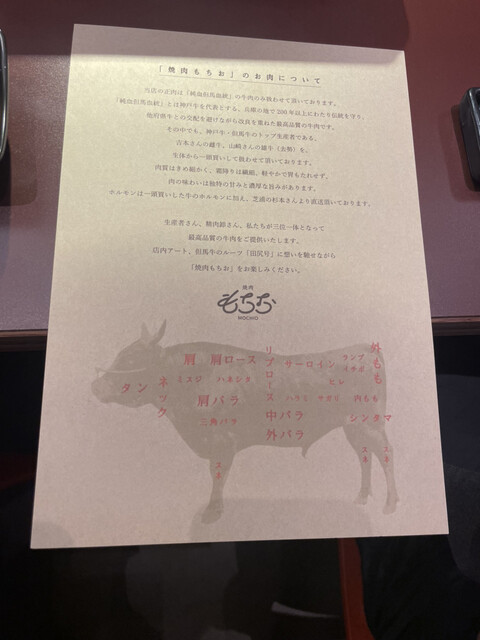 「焼肉もちお」のお肉について
当店の正肉は「純血但馬血統」の牛肉のみ扱わせて頂いております。
「純血但馬血統」とは神戸牛を代表とする、兵庫の地で200年以上にわたり伝統を守り、
他府県牛との交配を避けながら改良を重ねた最高品質の牛肉です。
その中でも、神戸牛・但馬牛のトップ生産者である、
吉本さんの雌牛、山崎さんの雄牛（去勢）を、
生体から一頭買いして扱わせて頂いております。
肉質はきめ細かく、霜降りは繊細、軽やかで胃もたれせず、
肉の味わいは独特の甘みと濃厚な旨みがあります。
ホルモンは一頭買いした牛のホルモンに加え、芝浦の杉本さんより直送頂いております。
生産者さん、精肉師さん、私たちが三位一体となって
最高品質の牛肉をご提供いたします。
店内アート、但馬牛のルーツ「田尻号」に想いを馳せながら
「焼肉もちお」をお楽しみください。
焼肉
もちお
MOCHIO
タン
ネック
肩
肩ロース
リブロース
サーロイン
ランプ
イチボ
外もも
ミスジ
ハネシタ
ヒレ
肩バラ
ハラミ
サガリ
内もも
三角バラ
中バラ
シンタマ
外バラ
スネ
スネ
スネ